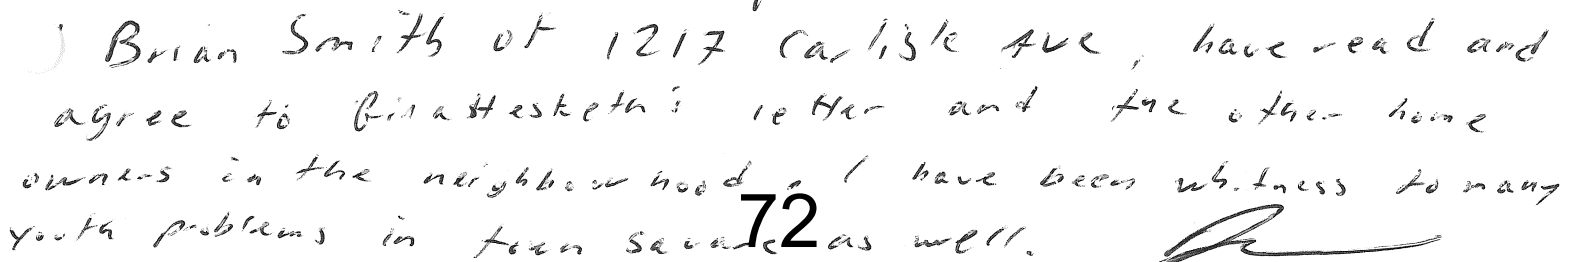 I Brian Smith of 1217 Carlisle Ave, have read and
agree to letter and the other home
owners in the neighbourhood. I have been whitness to many
youth problems in town square as well.
72